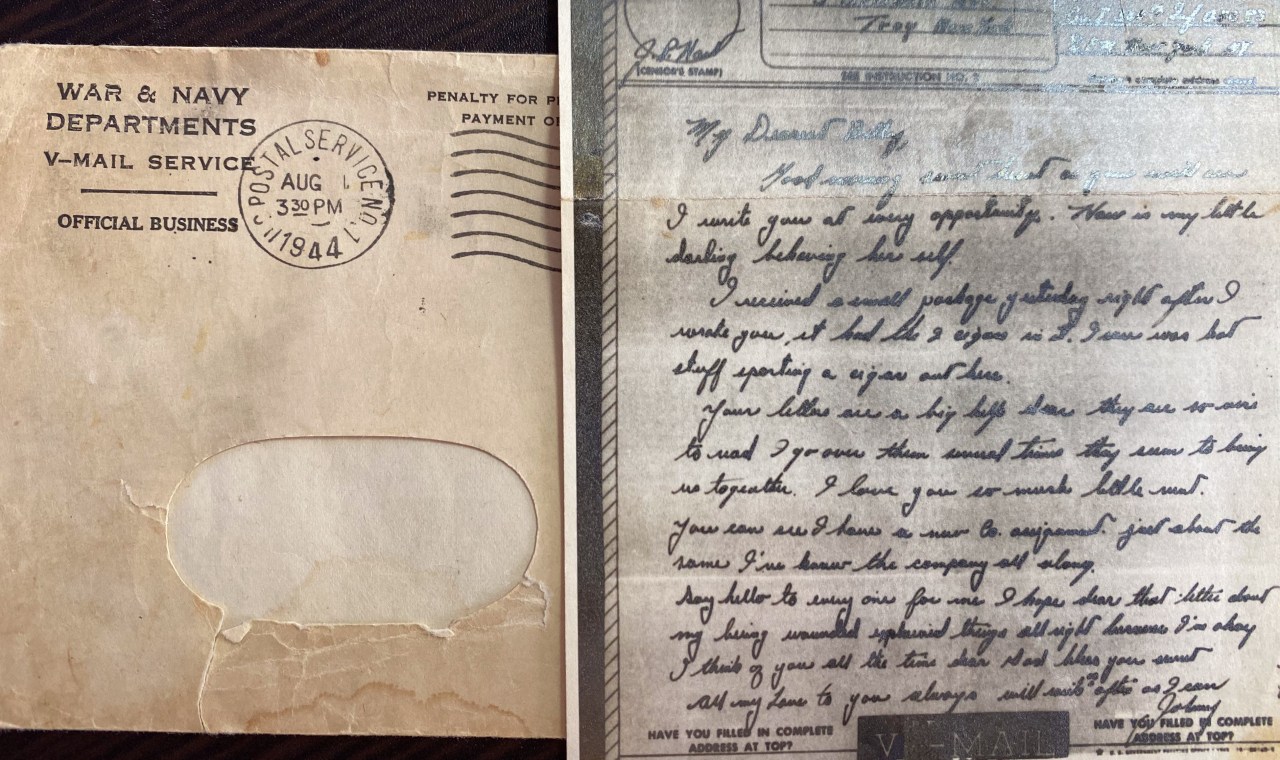 WAR & NAVY
DEPARTMENTS
V-MAIL SERVICE
OFFICIAL BUSINESS
POSTAL SERVICE NO. 1
AUG 1
3 30 PM
1944
PENALTY FOR
PAYMENT
Troy New York
(CENSOR'S STAMP)
SEE INSTRUCTION NO. 2
My Dearest Betty,
Good evening sweet heart as you well
I write you at every opportunity. How is my little
darling behaving her self.
I received a small package yesterday right after I
wrote you, it had the 2 cigars in it. I sure was hot
stuff sporting a cigar out here.
Your letters are a big help dear they are so nice
to read I go over them several times they seem to bring
us together. I love you so much little sweet.
You can see I have a new Co. assignment. just about the
same I've known the company all along.
Say hello to every one for me I hope dear that letter about
my being wounded explained things all right because I'm okay
I think of you all the time dear God bless you sweet
All my love to you always will write as often as I can
Johnny
HAVE YOU FILLED IN COMPLETE
ADDRESS AT TOP?
V-MAIL
HAVE YOU FILLED IN COMPLETE
ADDRESS AT TOP?